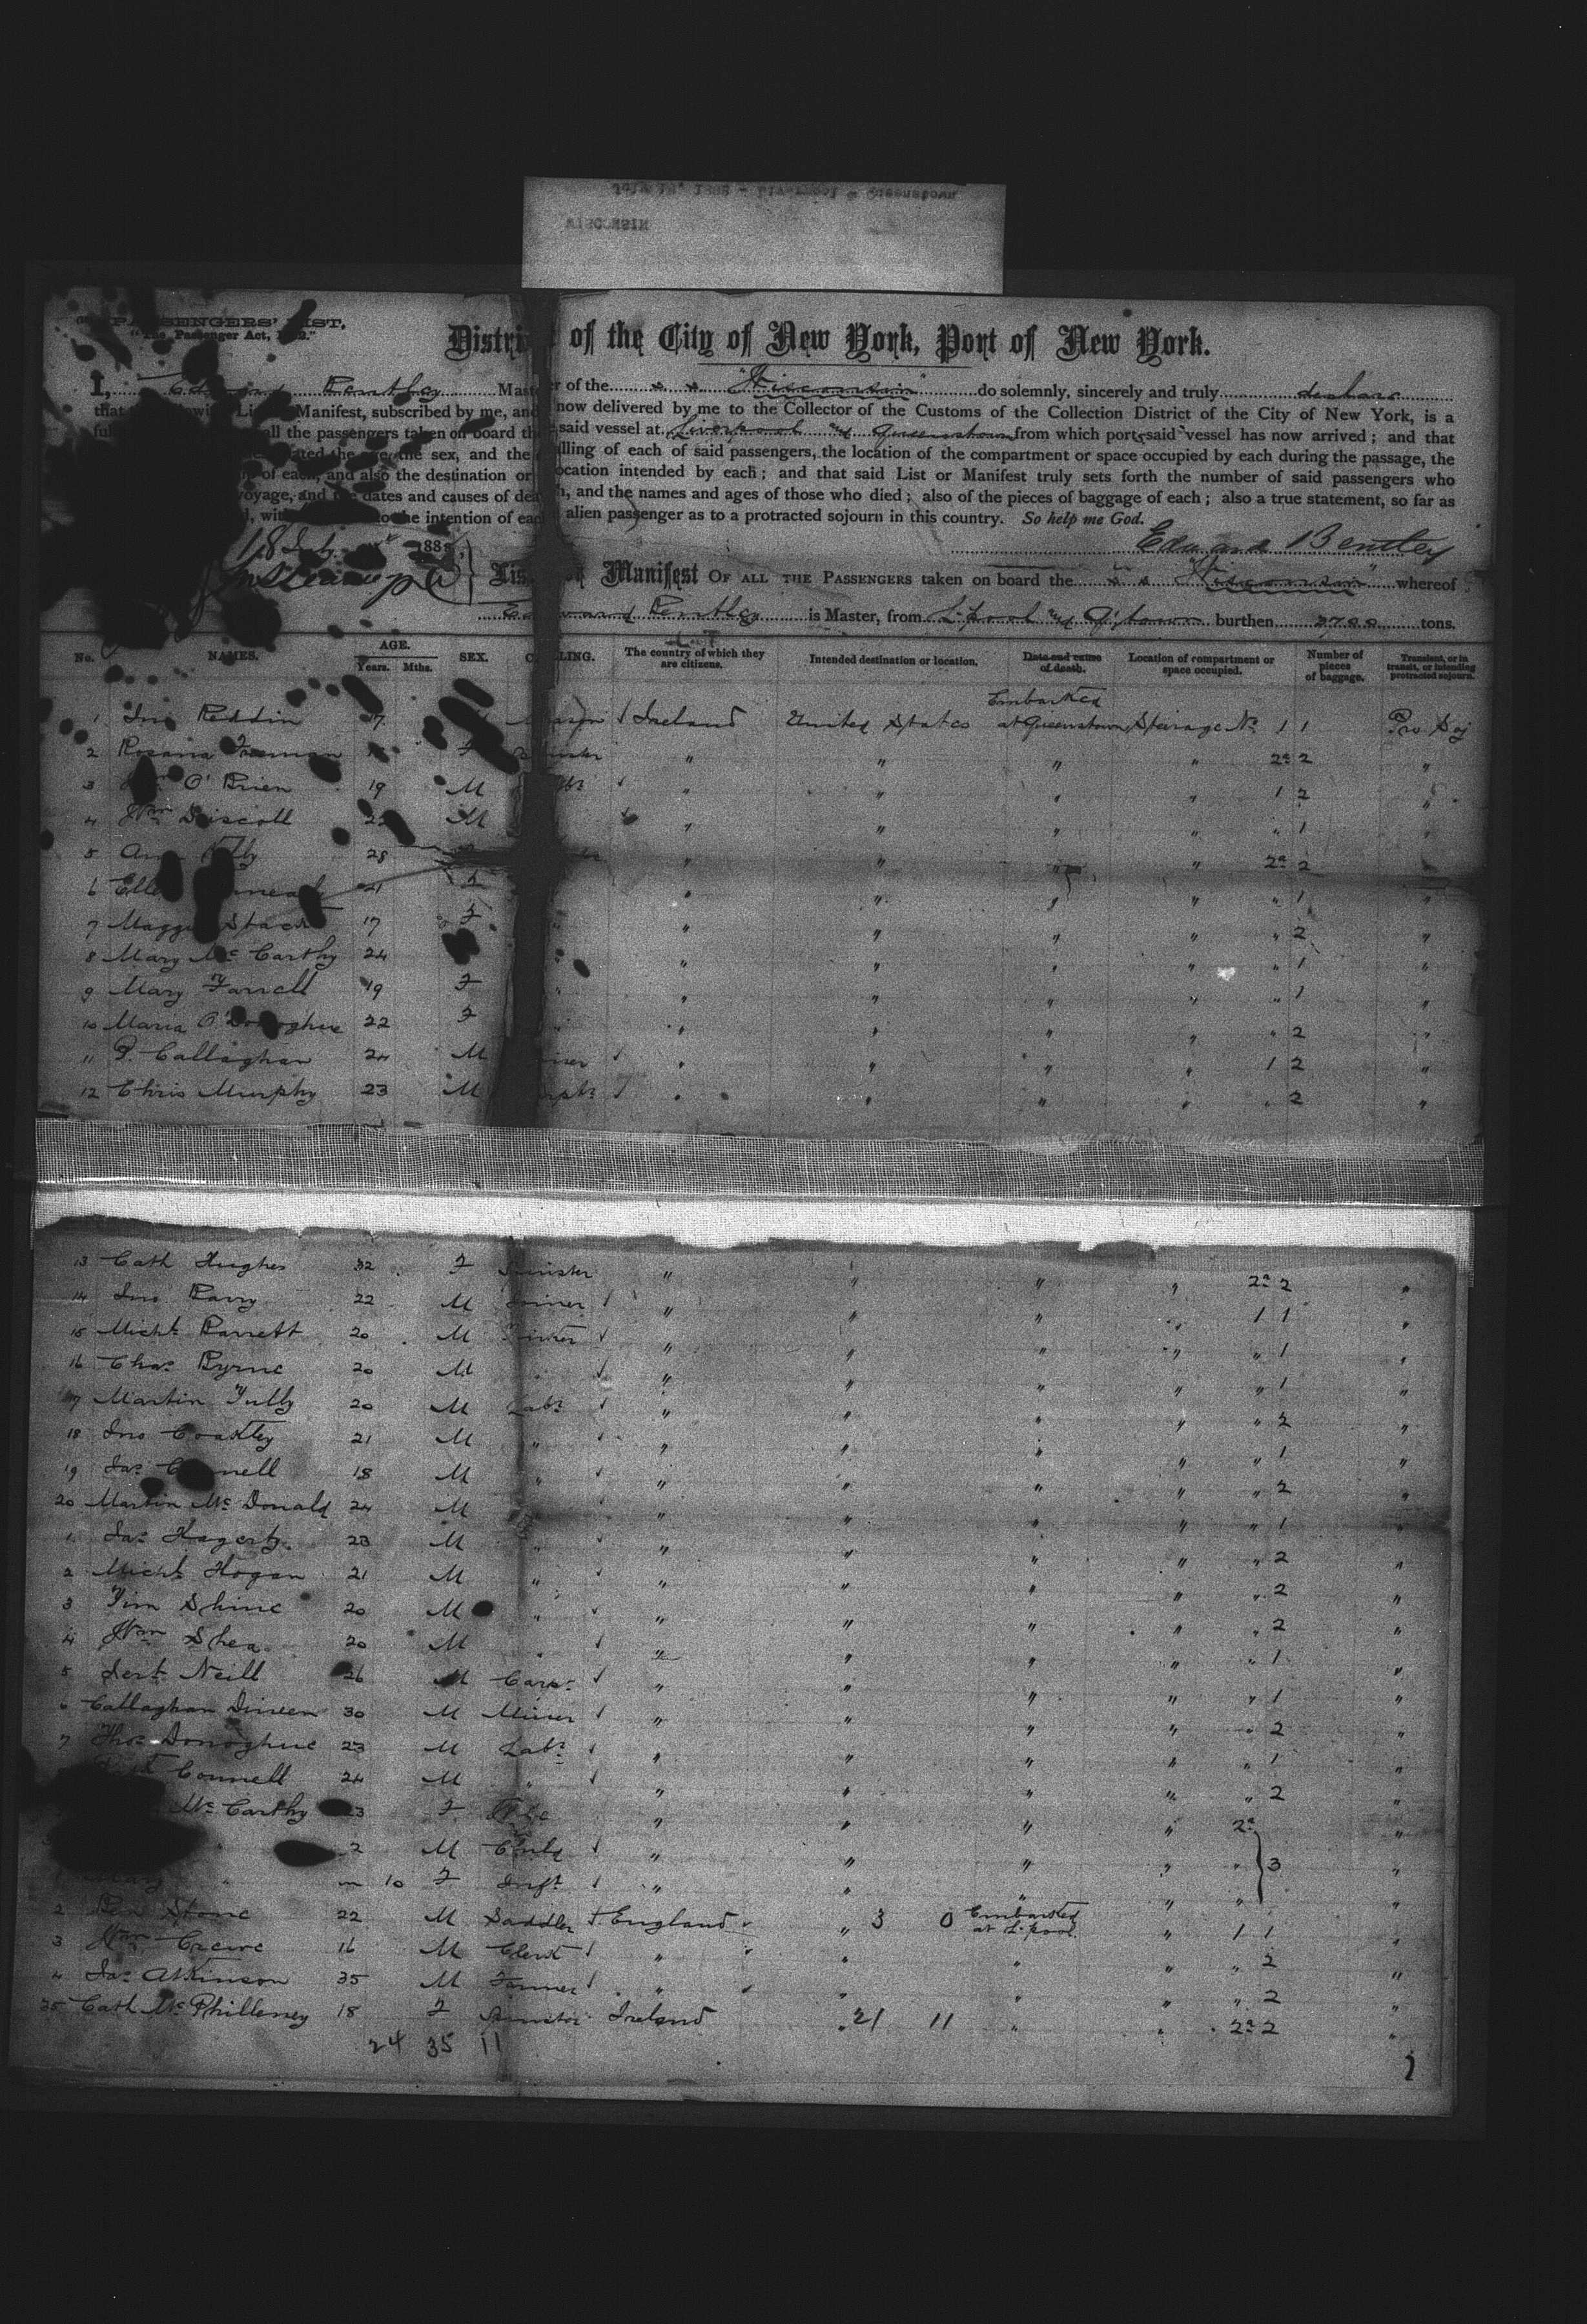 WISCONSIN
PASSENGERS' LIST.
"The Passenger Act, 1882."
District of the City of New York, Port of New York.
I, Edward Bentley Master of the s. s. "Wisconsin" do solemnly, sincerely and truly declare
that the following List or Manifest, subscribed by me, and now delivered by me to the Collector of the Customs of the Collection District of the City of New York, is a
full all the passengers taken on board the said vessel at Liverpool & Queenstown from which ports said vessel has now arrived; and that
the age, the sex, and the calling of each of said passengers, the location of the compartment or space occupied by each during the passage, the
of each, and also the destination or location intended by each; and that said List or Manifest truly sets forth the number of said passengers who
voyage, and the dates and causes of death, and the names and ages of those who died; also of the pieces of baggage of each; also a true statement, so far as
to the intention of each alien passenger as to a protracted sojourn in this country. So help me God.
18 July 188
Edward Bentley
List or Manifest OF ALL THE PASSENGERS taken on board the s. s. "Wisconsin" whereof
Edward Bentley is Master, from L'pool & Q'town burthen 2700 tons.
No. NAMES. AGE. Years. Mths. SEX. CALLING. The country of which they are citizens. Intended destination or location. Date and cause of death. Location of compartment or space occupied. Number of pieces of baggage. Transient, or in transit, or intending protracted sojourn.
1 Jno Reddin 17 Mason Ireland United States Embarked at Queenstown Steirage No. 1 1 Pro Soj
2 Rosana Freeman F Spinster " " " " 2a 2 "
3 O'Brien 19 M " " " " 1 2 "
4 Wm Driscoll 22 M " " " " " 1 "
5 Ann 28 " " " " 2a 2
6 21 F " " " " " 1 "
7 Maggie Stack 17 F " " " " " " 2 "
8 Mary McCarthy 24 " " " " " " 1 "
9 Mary Farrell 19 F " " " " " " 1 "
10 Maria O'Donoghue 22 F " " " " " " 2 "
11 P. Callaghan 24 M " " " " 1 2 "
12 Chris Murphy 23 M " " " " " 2 "
13 Cath Hughes 32 F Spinster " " " " 2a 2 "
14 Jno Barry 22 M Joiner " " " " 1 1 "
15 Michl Barrett 20 M " " " " " 1 "
16 Chas Byrne 20 M " " " " " 1 "
17 Martin Tully 20 M Labr " " " " " 2 "
18 Jno Coakley 21 M " " " " " " 1 "
19 Jas 18 M " " " " " " 2 "
20 Martin McDonald 24 M " " " " " 1 "
1 Jas Hagerty 23 M " " " " " " 2 "
2 Michl Hogan 21 M " " " " " " 2 "
3 Tim Shine 20 M " " " " " " 2 "
4 Wm Shea 20 M " " " " " 1 "
5 Jert Neill 26 M Carp " " " " " 1 "
6 Callaghan Dineen 30 M Miner " " " " " 2 "
7 Thos Donoghue 23 M Labr " " " " " 1 "
Connell 24 M " " " " " " 2 "
McCarthy 23 F Wife " " " " 2a "
" 2 M Child " " " " " 3 "
Mary " 10 F Inft " " " " " "
2 Ben Stone 22 M Saddler England " 3 0 Embarked at L'pool " 1 1 "
3 Wm Crewe 16 M Clerk " " " " " 2 "
4 Jas Atkinson 35 M Farmer " " " " " 2 "
35 Cath McPhilleney 18 F Spinster Ireland " 21 11 " " 2a 2 "
24 35 11